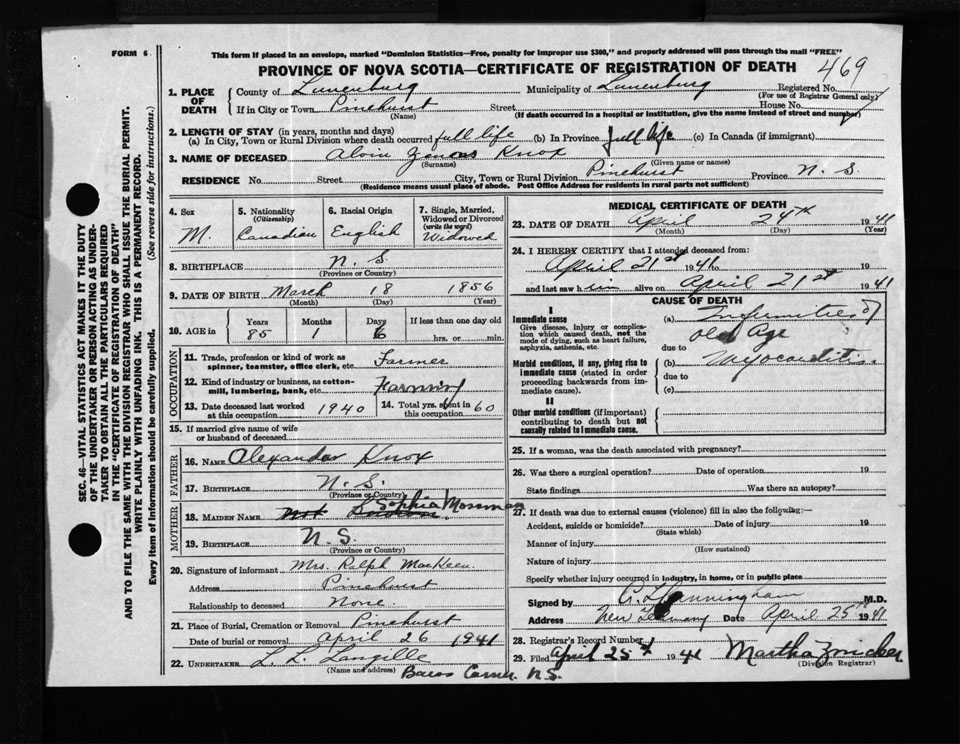 FORM 6
This form if placed in an envelope, marked "Dominion Statistics—Free, penalty for improper use $300," and properly addressed will pass through the mail "FREE"
PROVINCE OF NOVA SCOTIA—CERTIFICATE OF REGISTRATION OF DEATH 469
1. PLACE OF DEATH County of Lunenburg Municipality of Lunenburg Registered No.
(For use of Registrar General only)
If in City or Town Pinehurst Street House No.
(Name) (If death occurred in a hospital or institution, give the name instead of street and number)
2. LENGTH OF STAY (in years, months and days)
(a) In City, Town or Rural Division where death occurred full life (b) In Province full life (c) In Canada (if immigrant)
3. NAME OF DECEASED Alvin Knox
(Surname) (Given name or names)
RESIDENCE No. Street City, Town or Rural Division Pinehurst Province N. S.
(Residence means usual place of abode. Post Office Address for residents in rural parts not sufficient)
4. Sex M.
5. Nationality (Citizenship) Canadian
6. Racial Origin English
7. Single, Married, Widowed or Divorced (write the word) Widowed
8. BIRTHPLACE N. S.
(Province or Country)
9. DATE OF BIRTH March 18 1856
(Month) (Day) (Year)
10. AGE in Years 85 Months 1 Days 6 If less than one day old hrs. or min.
OCCUPATION
11. Trade, profession or kind of work as spinner, teamster, office clerk, etc. Farmer
12. Kind of industry or business, as cotton-mill, lumbering, bank, etc. Farming
13. Date deceased last worked at this occupation 1940
14. Total yrs. spent in 60
15. If married give name of wife or husband of deceased
FATHER
16. NAME Alexander Knox
17. BIRTHPLACE N. S.
(Province or Country)
MOTHER
18. MAIDEN NAME Sophia Mossman
19. BIRTHPLACE N. S.
(Province or Country)
20. Signature of informant Mrs. Ralph MacKeen
Address Pinehurst
Relationship to deceased None.
21. Place of Burial, Cremation or Removal Pinehurst
Date of burial or removal April 26 1941
22. UNDERTAKER L. L. Langille
(Name and address) Corner N.S.
MEDICAL CERTIFICATE OF DEATH
23. DATE OF DEATH April 24th 1941
(Month) (Day) (Year)
24. I HEREBY CERTIFY that I attended deceased from:
April 21st 1941 to 19
and last saw him alive on April 21st 1941
CAUSE OF DEATH
I
Immediate cause
Give disease, injury or complication which caused death, not the mode of dying, such as heart failure, asphyxia, asthenia, etc.
(a) Infirmities of old Age
due to
Morbid conditions, if any, giving rise to immediate cause (stated in order proceeding backwards from immediate cause).
(b) Myocarditis
due to
(c)
II
Other morbid conditions (if important) contributing to death but not causally related to immediate cause.
25. If a woman, was the death associated with pregnancy?
26. Was there a surgical operation? Date of operation 19
State findings Was there an autopsy?
27. If death was due to external causes (violence) fill in also the following:—
Accident, suicide or homicide? Date of injury 19
(State which)
Manner of injury
(How sustained)
Nature of injury
Specify whether injury occurred in industry, in home, or in public place
Signed by M.D.
Address New Germany Date April 25th 1941
28. Registrar's Record Number
29. Filed April 25th 1941 Martha Zwicker
(Division Registrar)
SEC. 46—VITAL STATISTICS ACT MAKES IT THE DUTY
OF THE UNDERTAKER OR PERSON ACTING AS UNDERTAKER TO OBTAIN ALL THE PARTICULARS REQUIRED
IN THE "CERTIFICATE OF REGISTRATION OF DEATH"
AND TO FILE THE SAME WITH THE DIVISION REGISTRAR WHO SHALL ISSUE THE BURIAL PERMIT.
WRITE PLAINLY WITH UNFADING INK. THIS IS A PERMANENT RECORD.
Every item of information should be carefully supplied. (See reverse side for instructions.)